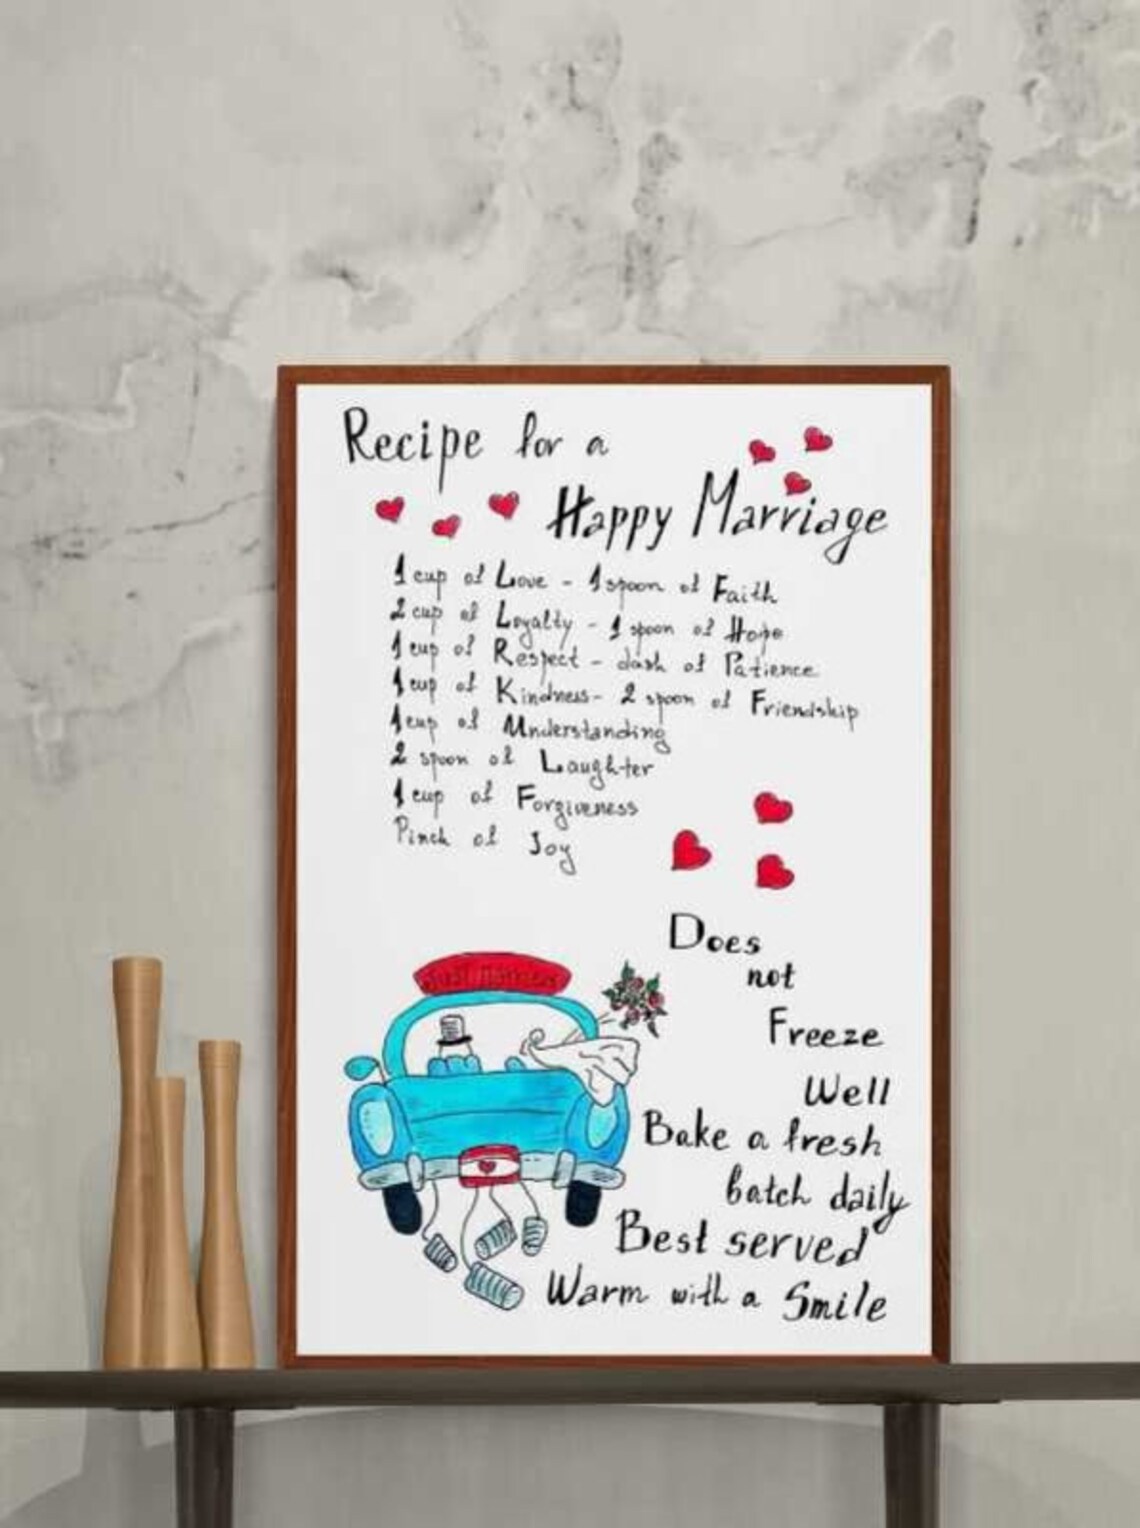 Recipe for a
Happy Marriage
1 cup of Love - 1 spoon of Faith
2 cup of Loyalty - 1 spoon of Hope
1 cup of Respect - dash of Patience
1 cup of Kindness - 2 spoon of Friendship
1 cup of Understanding
2 spoon of Laughter
1 cup of Forgiveness
Pinch of Joy
Does
not
Freeze
Well
Bake a fresh
batch daily
Best served
Warm with a Smile
Just Married